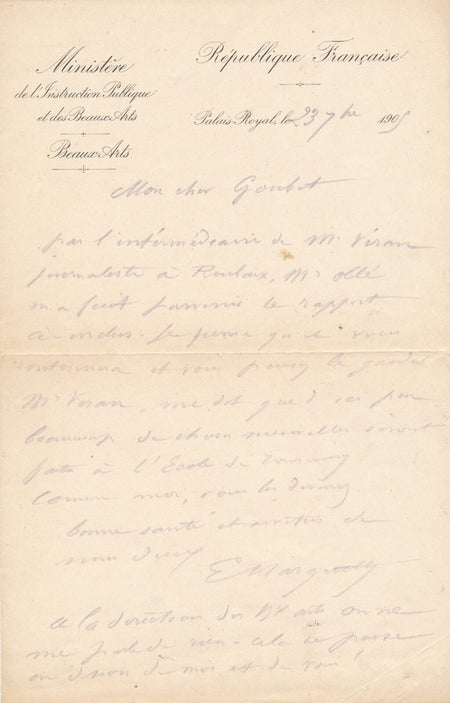 Ministère
de l'Instruction Publique
et des Beaux-Arts
Beaux-Arts
République Française
Palais-Royal, le 23 7bre 1905
Mon cher Goubet
par l'intermédiaire de Mr Véran
journaliste à Roubaix, Mr Ollé
m'a fait parvenir le rapport
ci-inclus. Je pense qu'il vous
intéressera et vous pouvez le garder
Mr Véran, me dit que d'ici peu
beaucoup de choses nouvelles seront
à l'Ecole de Tourcoing
comme moi, vous les
bonne santé et amitiés de
nous deux
E Marg
à la direction des Bx arts on ne
me parle de rien - cela se passe
en de moi et de vous !